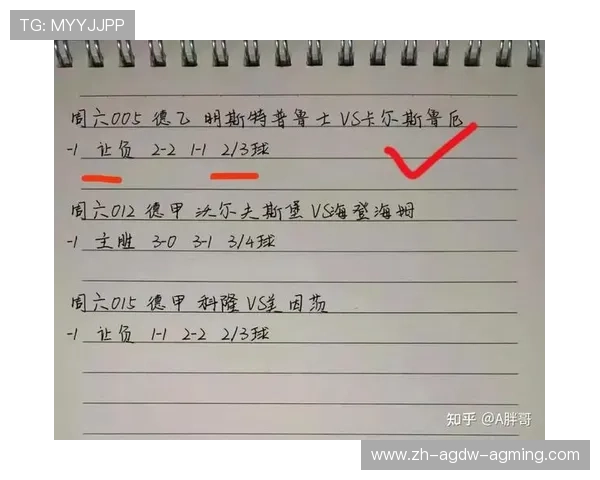 TG: MYYJJPP
周六005 德乙 明斯特普鲁士 VS卡尔斯鲁厄
-1 让负 2-2 1-1 2/3球
周六012 德甲 沃尔夫斯堡 VS海登海姆
-1 主胜 3-0 3-1 3/4球
周六015 德甲 科隆 VS美因茨
-1 让负 1-1 2-2 2/3球
知乎 @A胖哥
www.zh-agdw-agming.com